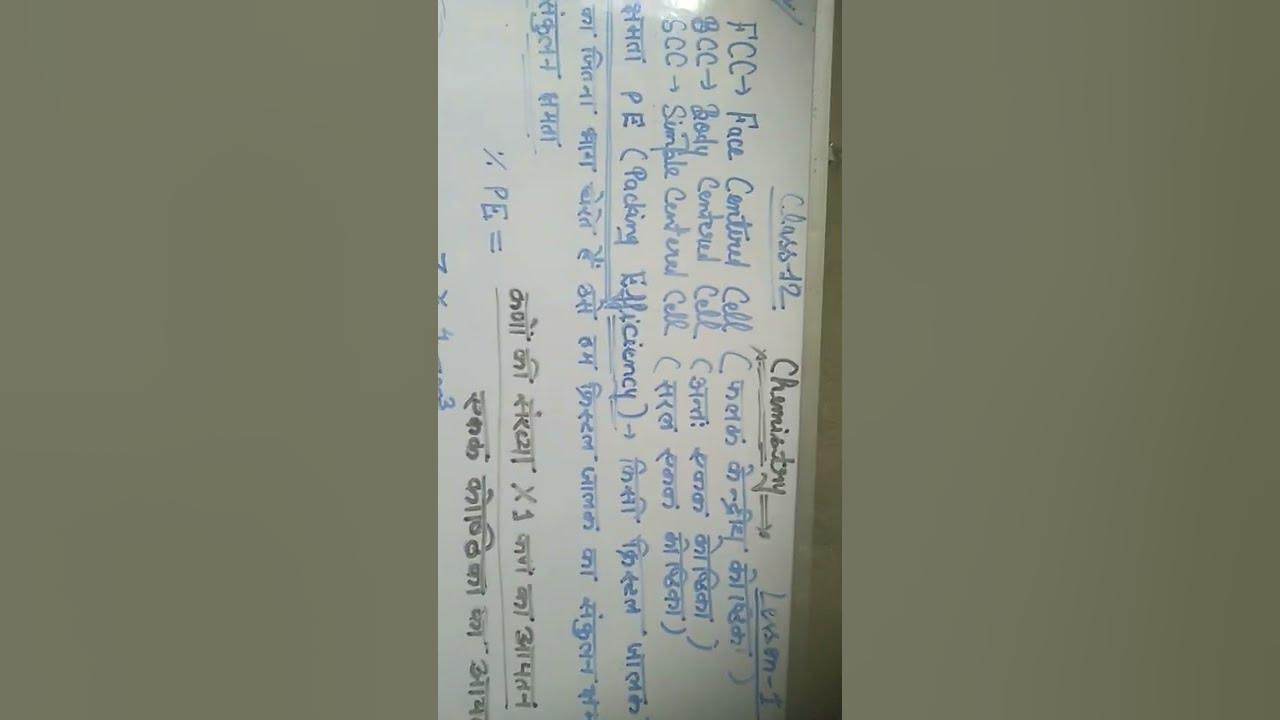 Class-12 Chemistry → Lesson-1
FCC → Face Centered Cell (फलक केन्द्रीय कोष्ठिका)
BCC → Body Centered Cell (अन्तः एकक कोष्ठिका)
SCC → Simple Centered Cell (सरल एकक कोष्ठिका)
क्षमता PE (Packing Efficiency) → किसी क्रिस्टल जालक
का जितना भाग घेरते हैं उसे हम क्रिस्टल जालक का संकुलन
संकुलन क्षमता
% PE = कणों की संख्या × 1 कण का आयतन
एकक कोष्ठिका का